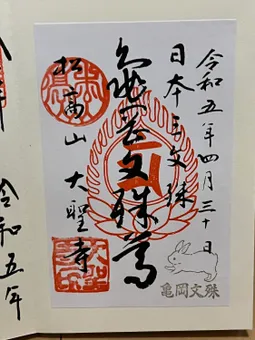 令和五年四月三十日
日本三文殊
亀岡文殊尊
松高山 大聖寺
亀岡文殊
令和五年